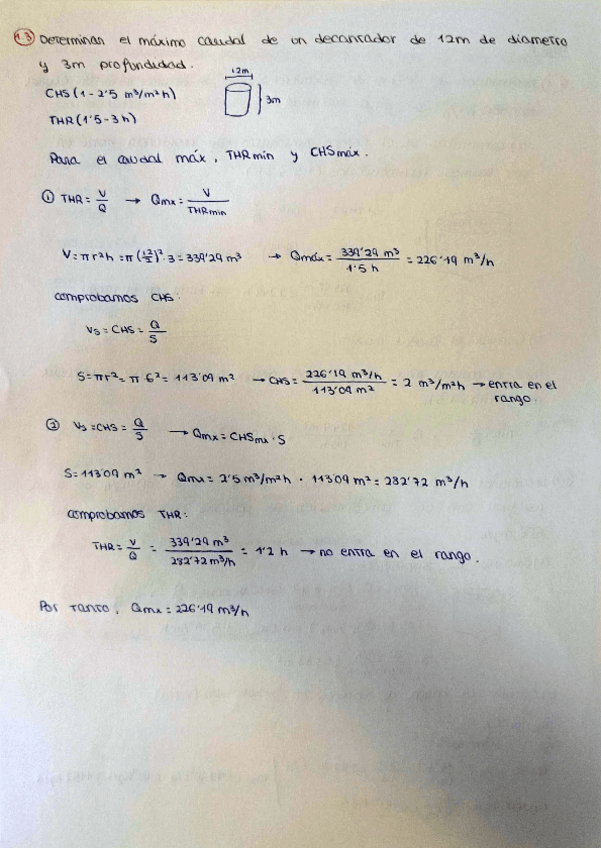 1.3 Determinar el máximo caudal de un decantador de 12m de diámetro
y 3m profundidad.
12m
CHS (1 - 2'5 m³/m²h)
3m
THR (1'5 - 3 h)
Para el caudal máx, THR mín y CHS máx.
① THR = V/Q → Qmx = V/THRmin
V = π r² h = π (12/2)² · 3 = 339'29 m³ → Qmáx = 339'29 m³/1'5 h = 226'19 m³/h
comprobamos CHS:
Vs = CHS = Q/S
S = π r² = π 6² = 113'09 m² → CHS = 226'19 m³/h / 113'09 m² = 2 m³/m²h → entra en el
rango.
② Vs = CHS = Q/S → Qmx = CHSmx · S
S = 113'09 m² → Qmx = 2'5 m³/m²h · 113'09 m² = 282'72 m³/h
comprobamos THR:
THR = V/Q = 339'29 m³/282'72 m³/h = 1'2 h → no entra en el rango.
Por tanto, Qmx = 226'19 m³/h